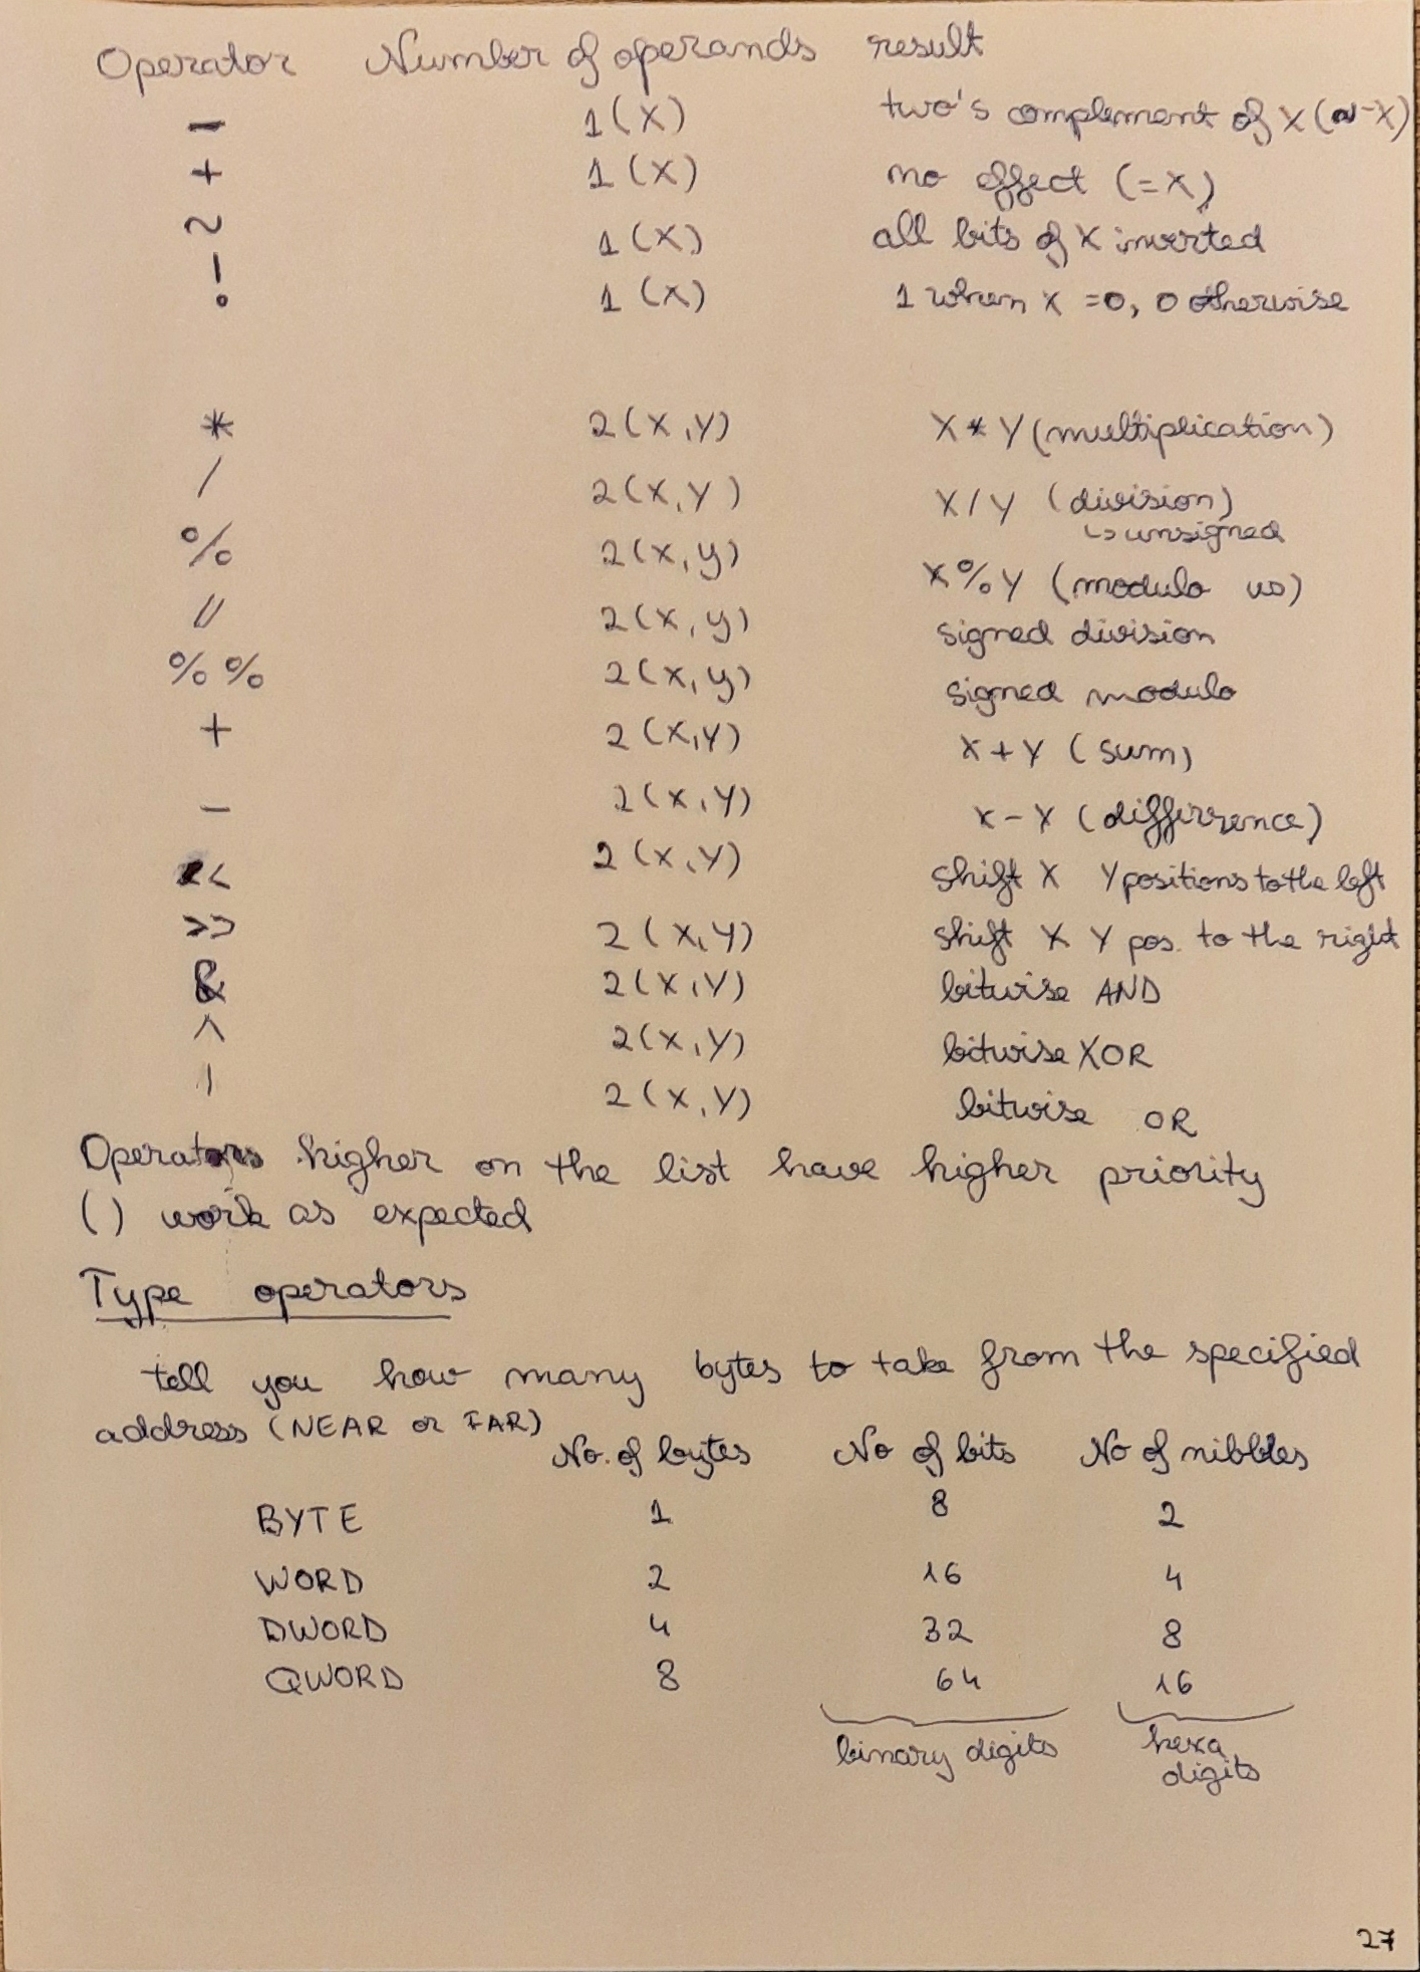 Operator Number of operands result
- 1(X) two's complement of X (~-X)
+ 1(X) no effect (=X)
~ 1(X) all bits of X inverted
! 1(X) 1 when X =0, 0 otherwise
* 2(X,Y) X*Y (multiplication)
/ 2(X,Y) X/Y (division)
↳ unsigned
% 2(X,y) X%Y (modulo us)
// 2(X,y) signed division
%% 2(X,y) signed modulo
+ 2(X,Y) X+Y (sum)
- 2(X,Y) X-X (difference)
<< 2(X,Y) shift X Y positions to the left
>> 2(X,Y) shift X Y pos. to the right
& 2(X,Y) bitwise AND
^ 2(X,Y) bitwise XOR
| 2(X,Y) bitwise OR
Operators higher on the list have higher priority
() work as expected
Type operators
tell you how many bytes to take from the specified
address (NEAR or FAR)
No. of bytes No of bits No of nibbles
BYTE 1 8 2
WORD 2 16 4
DWORD 4 32 8
QWORD 8 64 16
binary digits hexa
digits
27